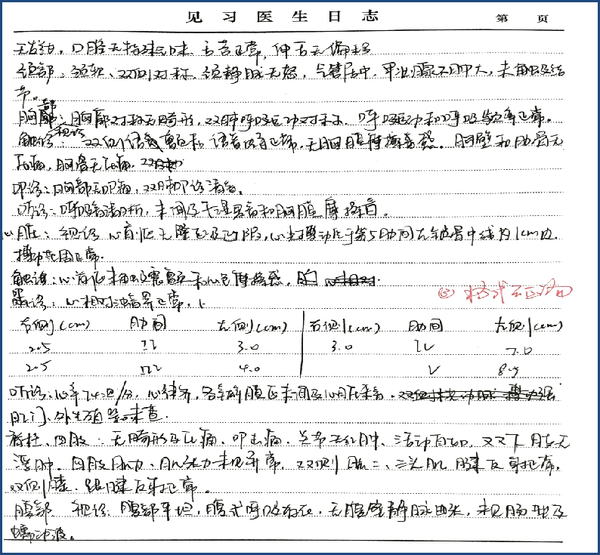 见习医生日志 第 页
口腔无特殊气味, 舌苔正常, 伸舌无偏
颈部: 颈软, 双侧对称, 颈静脉无怒, 气管居中, 甲状腺不肿大, 未触及结
节。
胸部: 视诊 胸廓对称无畸形, 双肺呼吸运动对称, 呼吸运动和呼吸频率正常。
触诊: 双侧语颤 语音 正常, 无胸膜摩擦感, 胸壁和肋骨无
压痛, 胸骨无压痛
叩诊: 胸部无叩痛, 双肺叩诊清音。
听诊: 呼吸音清晰, 未闻及干湿罗音和胸膜摩擦音。
心脏: 视诊 心前区无隆起及凹陷, 心尖搏动位于第5肋间左锁骨中线内1cm处
搏动范围正常。
触诊: 心前区未及震颤和心包摩擦感,
叩诊: 心相对浊音界正常,
③ 格式不正确
右侧(cm) 肋间 左侧(cm) 右侧(cm) 肋间 左侧(cm)
2.5 II 3.0 3.0 IV 7.0
2.5 III 4.0 V 8.5
听诊: 心率74回/分, 心律齐, 各瓣膜区未闻及心脏杂音,
肛门、外生殖器未查.
脊柱、四肢: 无畸形及压痛、叩击痛, 关节无红肿、活动自如, 双下肢无
浮肿, 四肢肌力、肌张力未见异常, 双侧肱二、三头肌腱反射正常,
双侧膝、跟腱反射正常。
腹部 视诊: 腹部平坦, 腹式呼吸存在, 无腹壁静脉曲张, 未见肠型及
蠕动波。